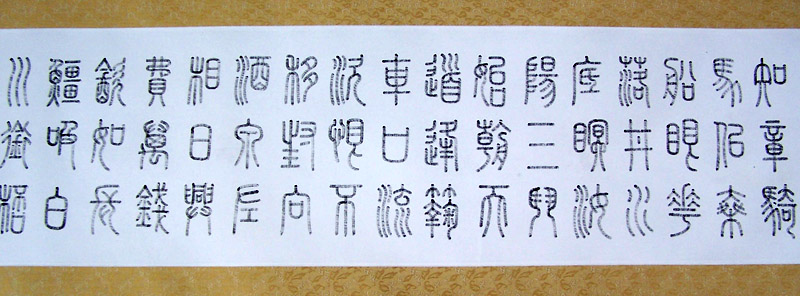 知章騎
馬佀乘
船眼華
落井水
底瞑汝
陽三斗
始朝天
道逢麴
車口流
涎恨不
移封向
酒泉左
相日興
費萬錢
飲如長
鱷吸百
川銜桮